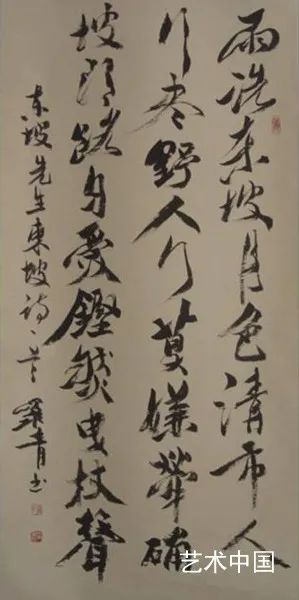 雨洗东坡月色清市人
行尽野人行莫嫌犖确
坡头路自愛鏗然曳杖聲
东坡先生東坡诗一首 羅青书
艺术中国